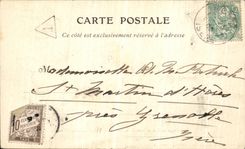 CARTE POSTALE
Ce côté est exclusivement réservé à l'adresse
Mademoiselle
St Martin d'Hères
près Grenoble
Isère